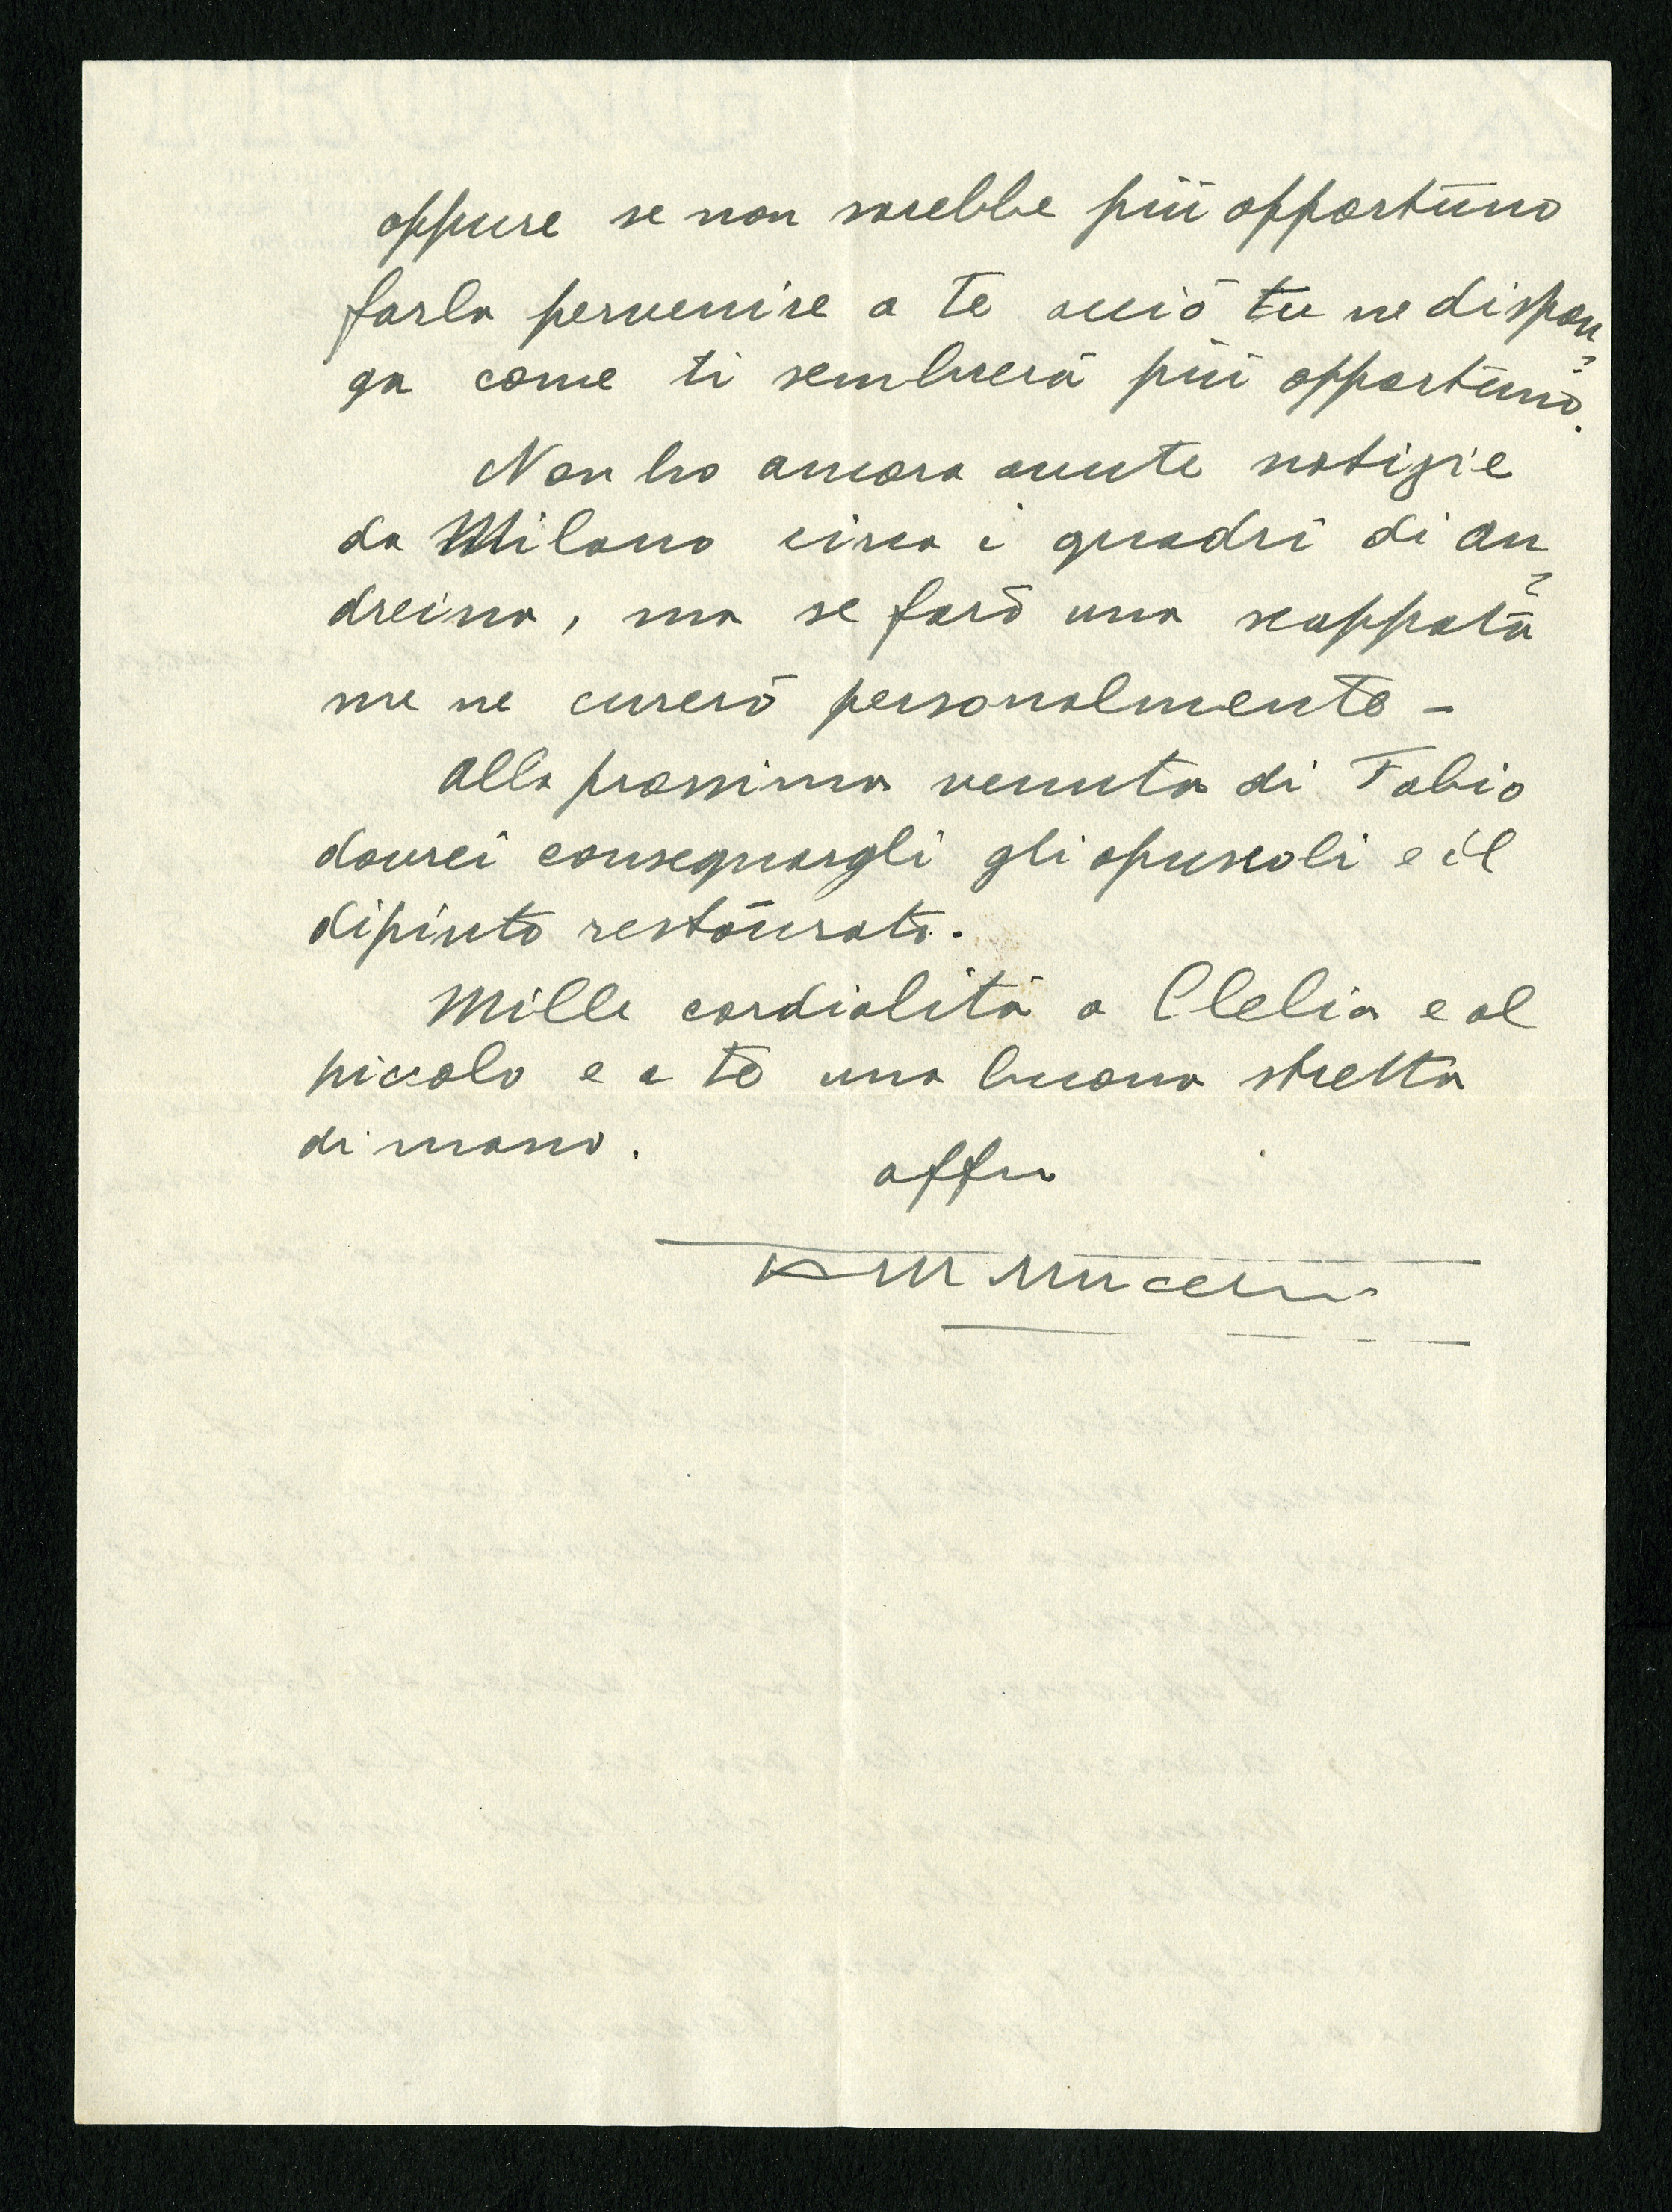 oppure se non sarebbe più opportuno
farla pervenire a te acciò tu ne dispon
ga come ti sembrerà più opportuno.
Non ho ancora avute notizie
da Milano circa i quadri di An
dreina, ma se farò una scappata
me ne curerò personalmente -
Alla prossima venuta di Fabio
dovrei consegnargli gli opuscoli e il
dipinto restaurato.
Mille cordialità a Clelia e al
piccolo e a te una buona stretta
di mano.
affmo